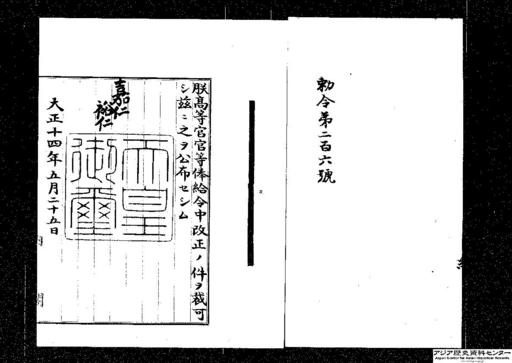 勅令第二百六號
朕高等官官等俸給令中改正ノ件ヲ裁可
シ茲ニ之ヲ公布セシム
嘉仁
裕仁
天皇御璽
大正十四年五月二十五日
内閣
アジア歴史資料センター
Japan Center for Asian Historical Records